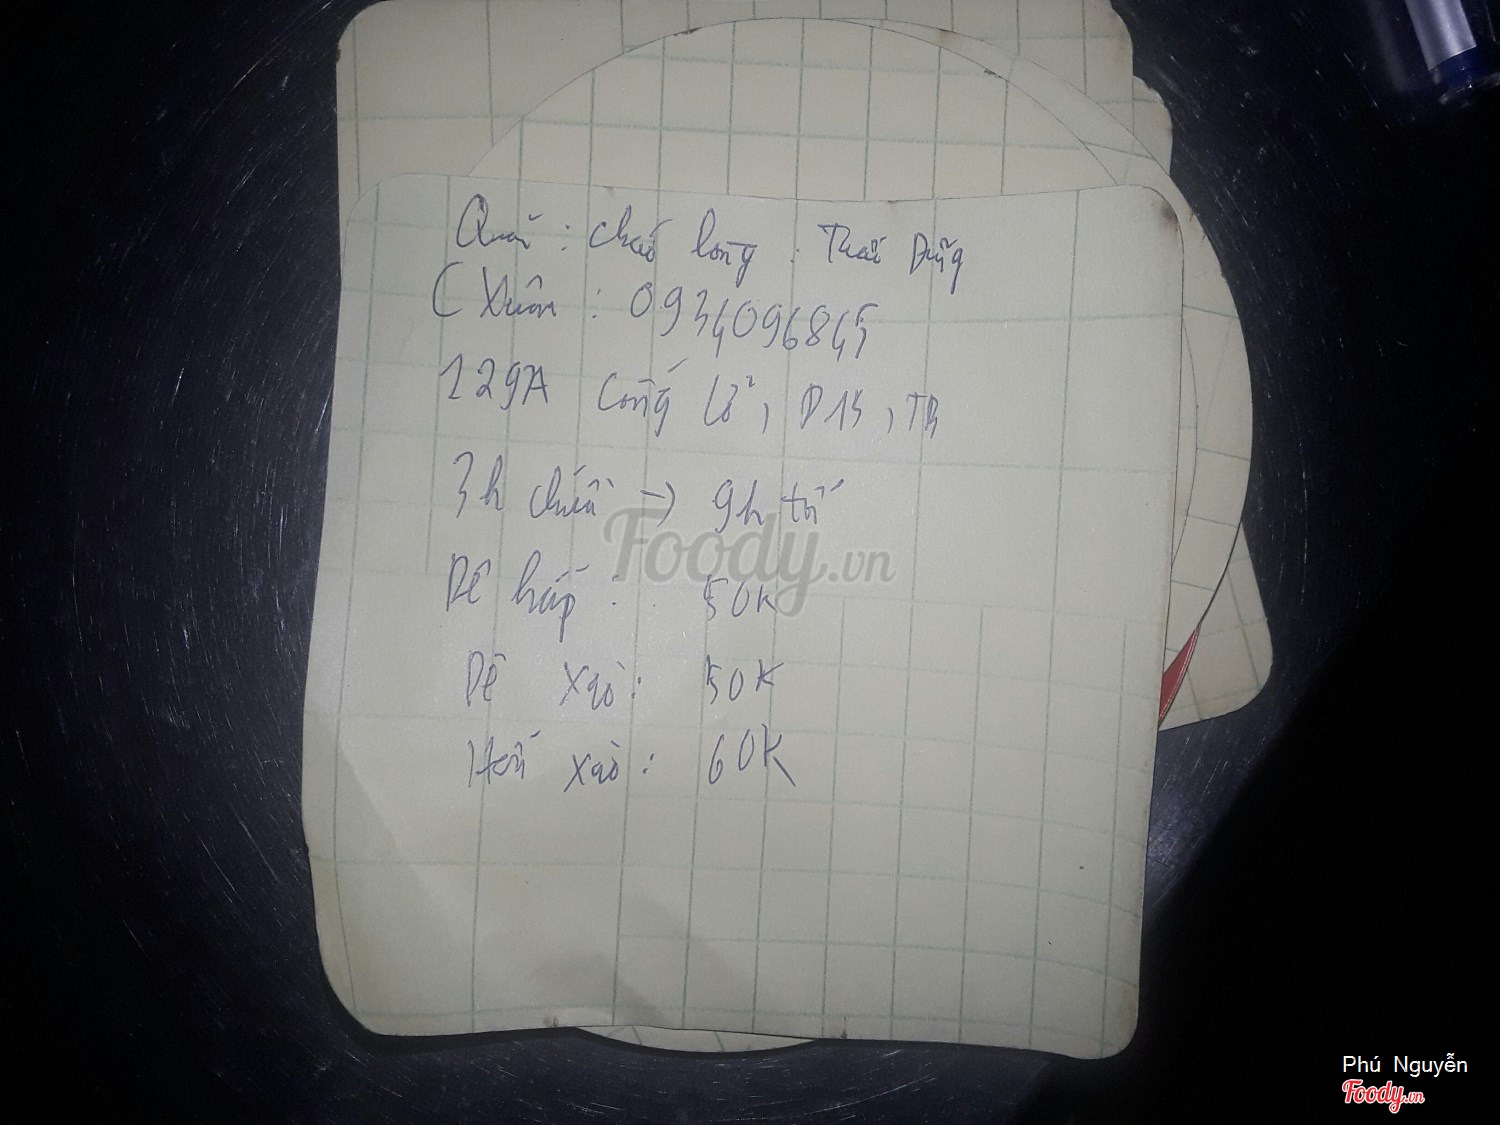 Quán : cháo lòng : Thái Dũng
C Xuân : 0934096845
129A Cống Lỡ, P15, TB
3h chiều → 9h tối
Dê hấp : 50K
Foody.vn
Dê xào : 50K
Heo xào : 60K
Phú Nguyễn
Foody.vn